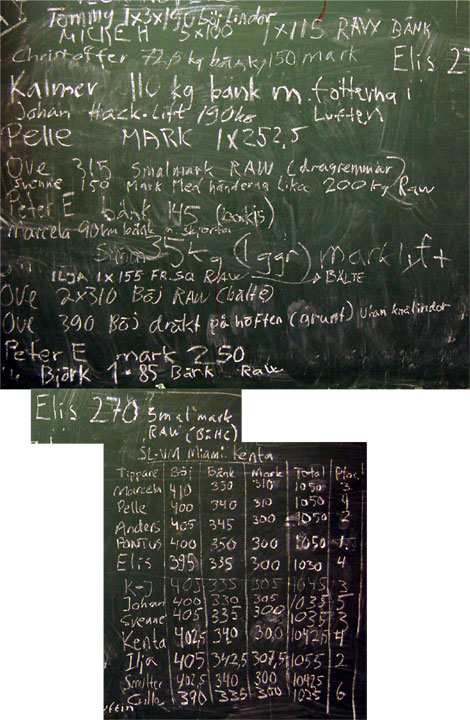 Tommy 1x3x190 böj lindor
MICKE H 5x100 1x115 RAW BÄNK
Christoffer 72,5 kg bänk, 150 mark
Elis 27
Kalmer 110 kg bänk m. fötterna i
Luften
Johan Hack-Lift 190 kg
Pelle MARK 1x252,5
Ove 315 smalmark RAW (dragremmar)
Svenne 150 Mark Med händerna lika 200 kg Raw
Peter E bänk 145 (bakis)
Marcela 90 km bänk m skjorta
35 kg (1 ggr) marklyft
Ilja 1x155 FR.SQ RAW → BÄLTE
OVE 2x310 Böj RAW (bälte)
Ove 390 Böj dräkt på höften (grunt) utan knälindor
Peter E mark 250
Björk 1·85 Bänk Raw
Elis 270 Smalmark
RAW (BÄLTE)
SL-VM Miami Kenta
Tippare Böj Bänk Mark Total Plac.
Marcela 410 350 310 1050 3
Pelle 400 340 310 1050 4
Anders 405 345 300 1050 2
PONTUS 400 350 300 1050 1.
Elis 395 335 300 1030 4
K-J 405 335 305 1045 3
Johan 400 330 305 1035 5
Svenne 405 335 300 1035 3
Kenta 402,5 340 300 1042,5 4
Ilja 405 342,5 307,5 1055 2
Smilter 402,5 340 300 1042,5
Gilla 390 335 300 1025 6